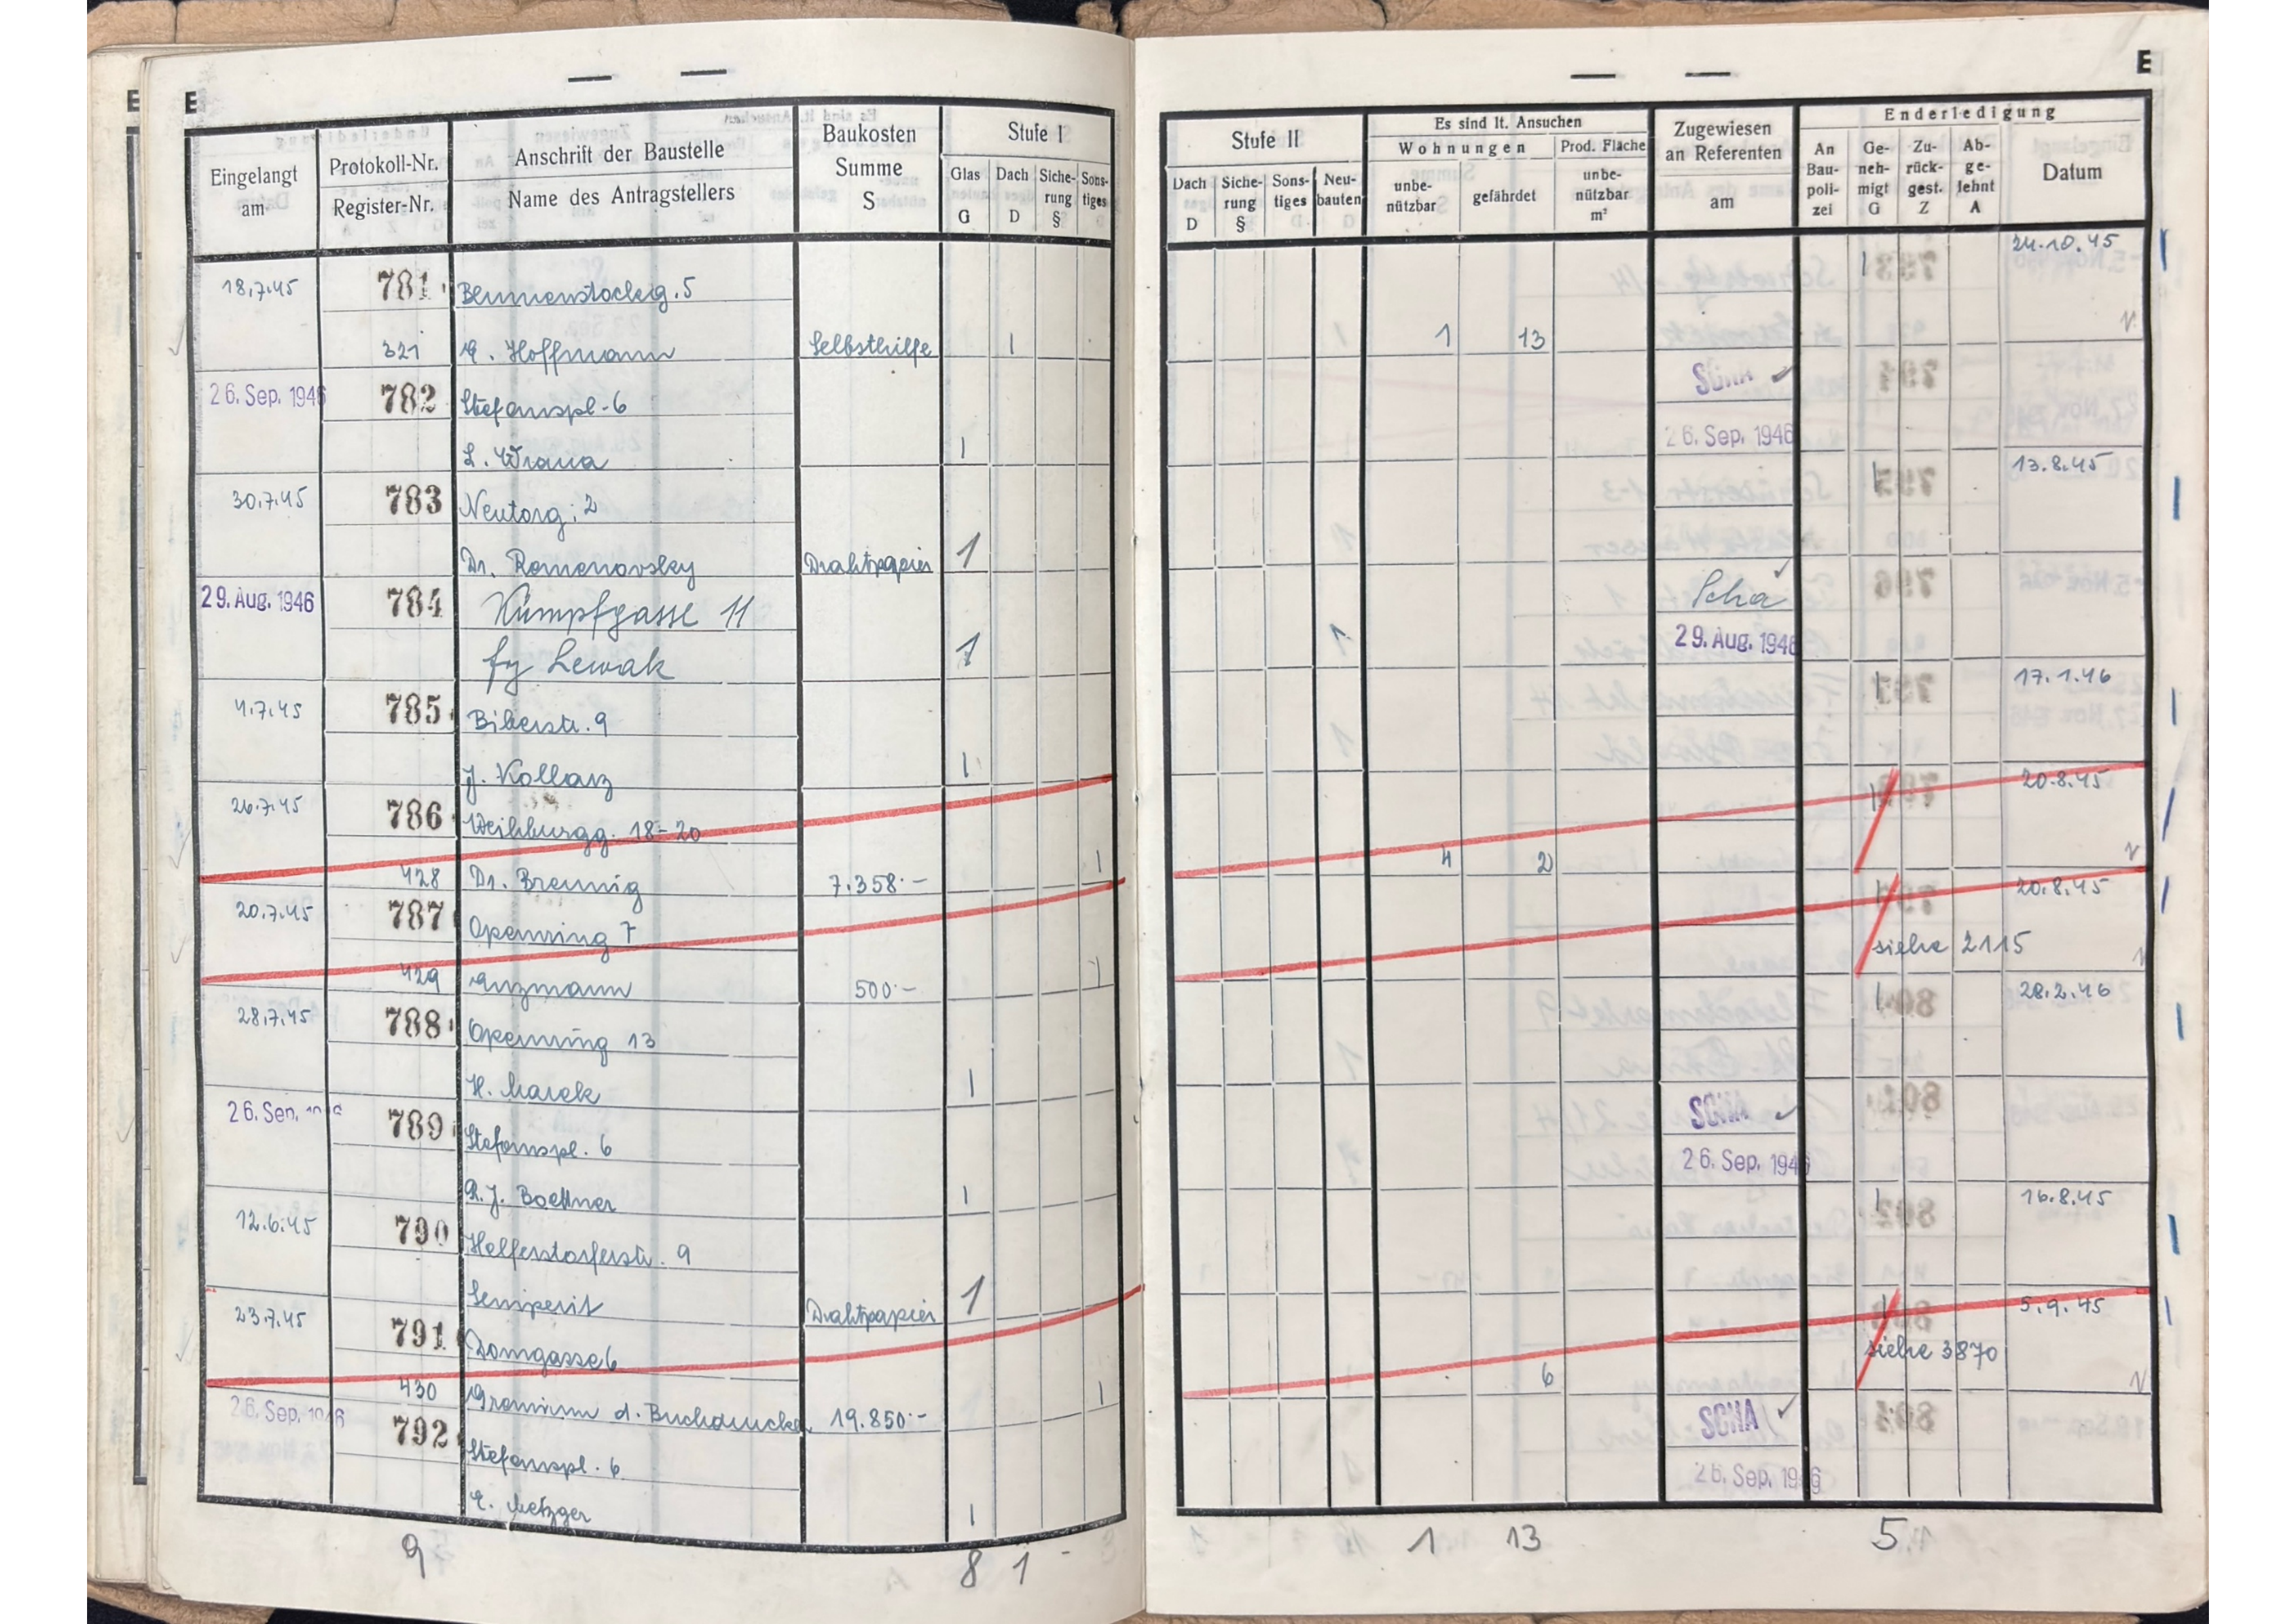 E
Eingelangt am
Protokoll-Nr.
Register-Nr.
Anschrift der Baustelle
Name des Antragstellers
Baukosten Summe S
Stufe I
Glas G
Dach D
Siche-rung §
Sons-tiges
18.7.45 781 Blumenstockg. 5
321 E. Hoffmann Selbsthilfe 1
26. Sep. 1946 782 Stefanspl. 6
L. Wrana 1
30.7.45 783 Neutorg. 2
Dr. Romanovsky Drahtpapier 1
29. Aug. 1946 784 Kumpfgasse 11
fy Lewak 1
4.7.45 785 Biberstr. 9
J. Kollarz 1
26.7.45 786 Weihburgg. 18-20
428 Dr. Brennig 7.358.- 1
20.7.45 787 Opernring 7
429 Anzmann 500.- 1
28.7.45 788 Opernring 13
H. Marek 1
26. Sep. 1946 789 Stefanspl. 6
R.J. Boettner 1
12.6.45 790 Helferstorferstr. 9
Semperit Drahtpapier 1
23.7.45 791 Domgasse 6
430 Gremium d. Buchdrucker 19.850.- 1
26. Sep. 1946 792 Stefanspl. 6
E. Metzger 1
9 8 1 -
E
Stufe II
Dach D
Siche-rung §
Sons-tiges
Neu-bauten
Es sind lt. Ansuchen
Wohnungen
unbe-nützbar
gefährdet
Prod. Fläche
unbe-nützbar m²
Zugewiesen an Referenten am
Enderledigung
An Bau-poli-zei
Ge-neh-migt G
Zu-rück-gest. Z
Ab-ge-lehnt A
Datum
1 24.10.45
1 13
SCHA
26. Sep. 1946
1 13.8.45
Scha
1 29. Aug. 1946
1 17.1.46
1 20.8.45
4 2
1 20.8.45
siehe 2115
1 28.2.46
SCHA
26. Sep. 1946
1 16.8.45
1 5.9.45
siehe 3870
6
SCHA
26. Sep. 1946
1 13 5